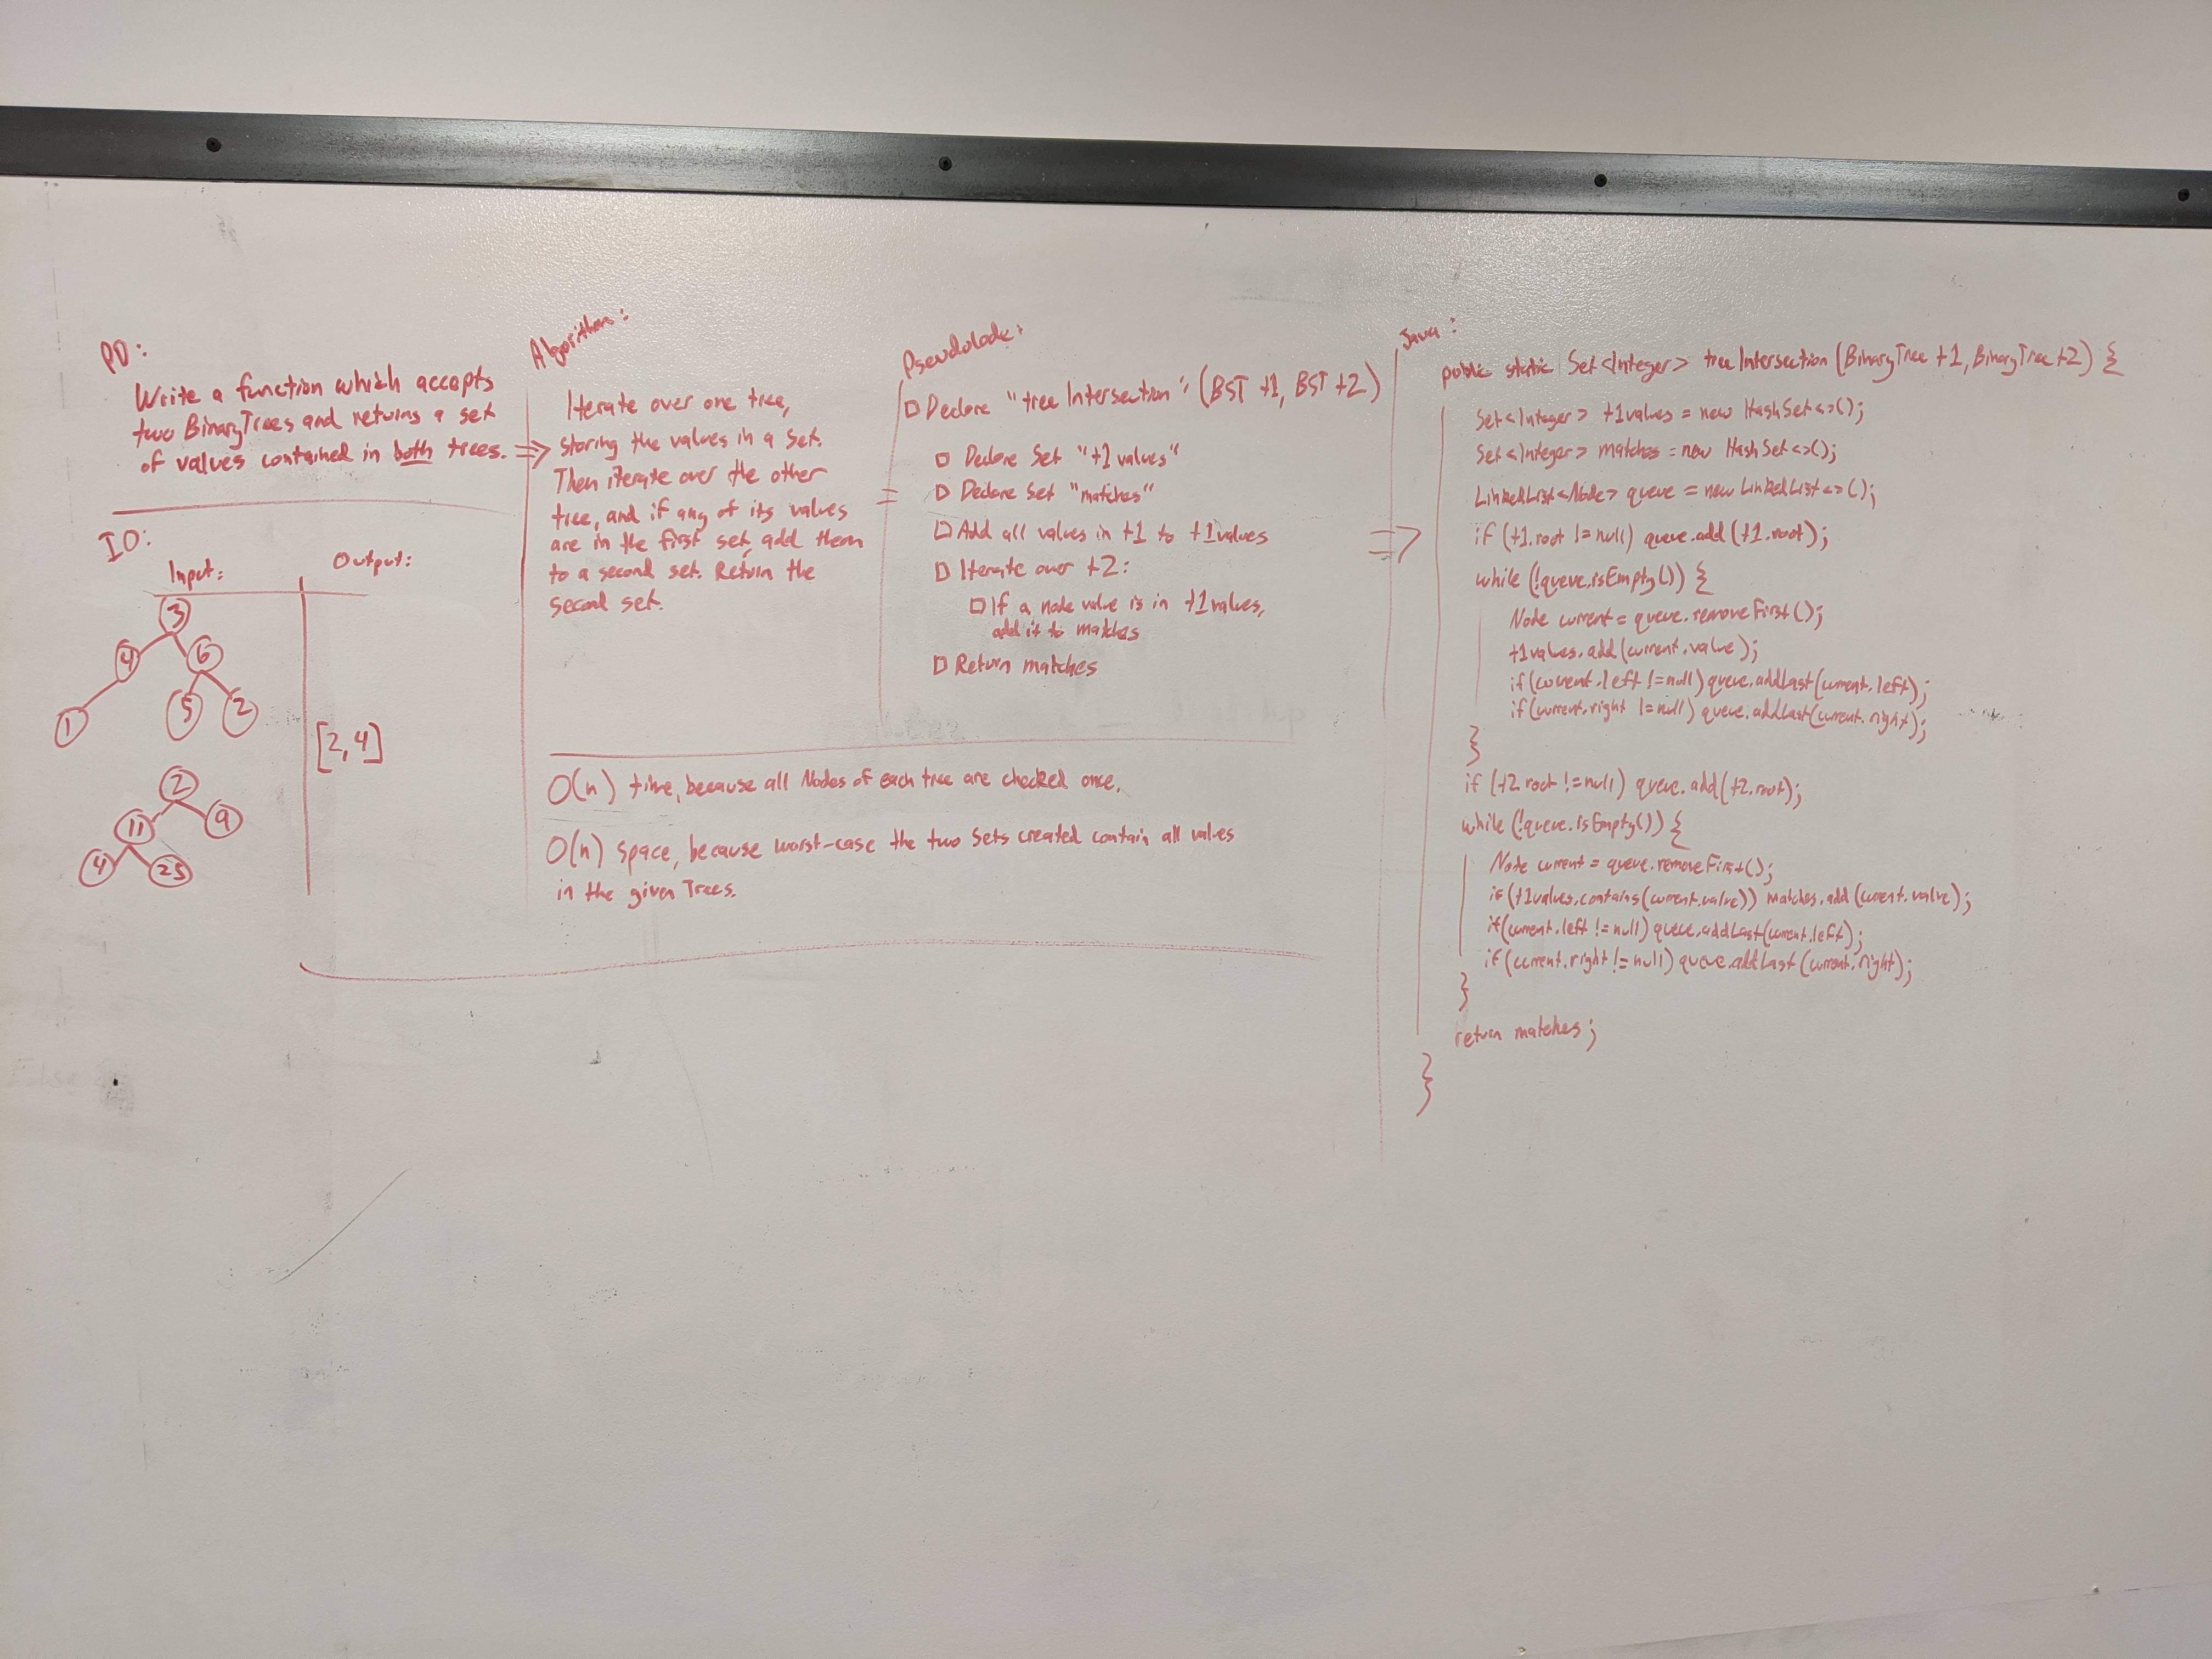 PD:
Write a function which accepts
two BinaryTrees and returns a set
of values contained in both trees.
IO:
Input:
Output:
3
4
6
1
5
2
[2,4]
2
11
9
4
25
Algorithm:
Iterate over one tree,
storing the values in a Set.
Then iterate over the other
tree, and if any of its values
are in the first set, add them
to a second set. Return the
second set.
PseudoCode:
Declare "treeIntersection": (BST t1, BST t2)
Declare Set "t1values"
Declare Set "matches"
Add all values in t1 to t1values
Iterate over t2:
If a node value is in t1values,
add it to matches
Return matches
O(n) time, because all Nodes of each tree are checked once.
O(n) space, because worst-case the two Sets created contain all values
in the given Trees.
Java:
public static Set<Integer> treeIntersection(BinaryTree t1, BinaryTree t2) {
Set<Integer> t1values = new HashSet<>();
Set<Integer> matches = new HashSet<>();
LinkedList<Node> queue = new LinkedList<>();
if (t1.root != null) queue.add(t1.root);
while (!queue.isEmpty()) {
Node current = queue.removeFirst();
t1values.add(current.value);
if (current.left != null) queue.addLast(current.left);
if (current.right != null) queue.addLast(current.right);
}
if (t2.root != null) queue.add(t2.root);
while (!queue.isEmpty()) {
Node current = queue.removeFirst();
if (t1values.contains(current.value)) matches.add(current.value);
if (current.left != null) queue.addLast(current.left);
if (current.right != null) queue.addLast(current.right);
}
return matches;
}